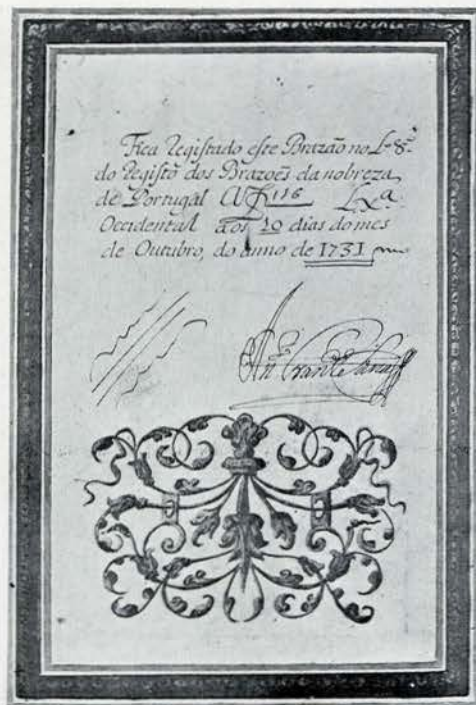 Fica Registado este Brazão no L.º 8.º
do Registo dos Brazoẽs da nobreza
de Portugal Af 116 Lx.ª
Occidental aos 20 dias do mes
de Outubro, do anno de 1731